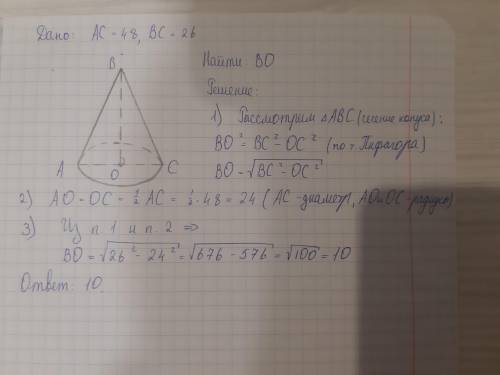 Дано: AC = 48, BC = 26
Найти: BO
Решение:
B
A O C
1) Рассмотрим △ABC (сечение конуса):
BO² = BC² - OC² (по т. Пифагора)
BO = √BC² - OC²
2) AO = OC = ½ AC = ½ · 48 = 24 (AC - диаметр, AO и OC - радиусы)
3) Из п. 1 и п. 2 =>
BO = √26² - 24² = √676 - 576 = √100 = 10
Ответ: 10.